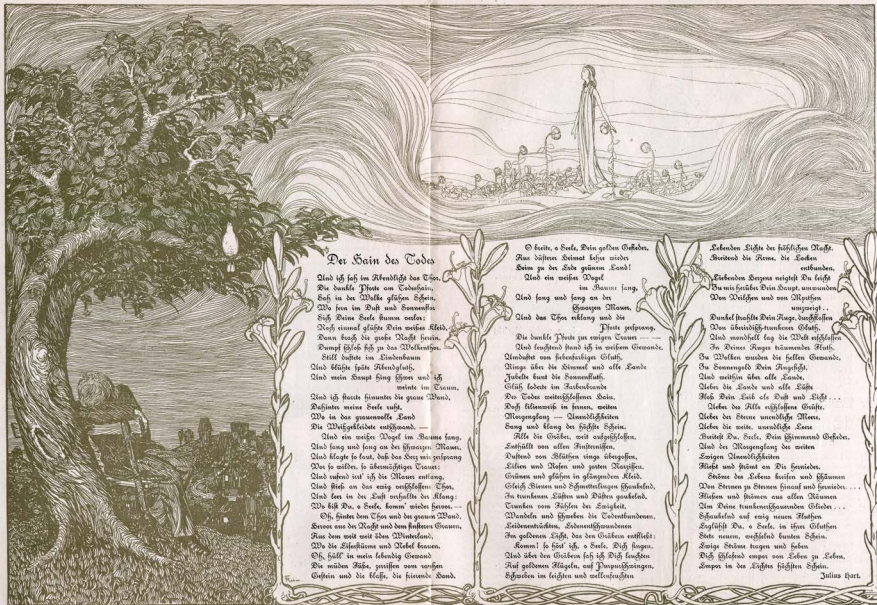 Der Hain des Todes
Und ich sah im Abendlicht das Thor,
Die dunkle Pforte am Todeshain,
Sah in der Wolke glühen Schein,
Wo fern im Duft und Sonnenflor
Sich Deine Seele stumm verlor;
Noch einmal glühte Dein weißes Kleid,
Dann brach die große Nacht herein,
Dumpf schloß sich zu das Wolkenthor.
Still duftete im Lindenbaum
Und blühte späte Abendgluth,
Und mein Haupt hing schwer und ich
weinte im Traum,
Und ich starrte hinunter die graue Wand,
Dahinter meine Seele ruht,
Wo in das grauenvolle Land
Die Weißgekleidete entschwand. —
Und ein weißer Vogel im Baume sang,
Und sang und sang an der schwarzen Mauer,
Und klagte so laut, daß das Herz mir zersprang
Vor so wilder, so übermächtiger Trauer;
Und rufend irrt' ich die Mauer entlang,
Und stieß an das ewig verschlossene Thor,
Und leer in der Luft verhallte der Klang:
Wo bist Du, o Seele, komm' wieder hervor. —
Oh, hinter dem Thor und der grauen Wand,
Hervor aus der Nacht und dem finsteren Grauen,
Aus dem weit weit öden Winterland,
Wo die Eisestürme und Nebel brauen.
Oh, hüll' in mein lebendig Gewand
Die müden Füße, zerrissen vom rauhen
Gestein und die blasse, die frierende Hand.
O breite, o Seele, Dein golden Gefieder,
Aus düsterer Heimat kehre wieder
Heim zu der Erde grünem Land!
Und ein weißer Vogel
im Baume sang,
Und sang und sang an der
schwarzen Mauer,
Und das Thor erklang und die
Pforte zersprang,
Die dunkle Pforte zur ewigen Trauer — —
Und leuchtend stand ich in weißem Gewande,
Umduftet von siebenfarbiger Gluth,
Rings über die Himmel und alle Lande
Jubelte bunt die Sonnenfluth.
Glüh loderte im Farbenbrande
Des Todes weiterschlossener Hain,
Doch lilienweiß in fernen, weiten
Morgenglanz — Unendlichkeiten
Sang und klang der höchste Schein.
Alle die Gräber, weit aufgeschlossen,
Enthüllt von allen Finsternissen,
Duftend von Blüthen rings übergossen,
Lilien und Rosen und zarten Narzissen,
Grünen und glühen in glänzendem Kleid.
Gleich Bienen und Schmetterlingen schaukelnd,
In trunkenen Lüften und Düften gaukelnd,
Trunken vom Fühlen der Ewigkeit,
Wandeln und schweben die Todentbundenen,
Leidenentrückten, Erdenentschwundenen
Im goldenen Licht, das den Gräbern entfließt:
Komm! so hört' ich, o Seele, Dich singen,
Und über den Gräbern sah ich Dich leuchten
Auf goldenen Flügeln, auf Purpurschwingen,
Schweben im leichten und wellenfeuchten
Lebenden Lichte der fröhlichen Nacht.
Breitend die Arme, die Locken
entbunden,
Liebenden Herzens neigtest Du leicht
Zu mir herüber Dein Haupt, umwunden
Von Veilchen und von Myrthen
umzweigt . .
Dunkel strahlte Dein Auge, durchflossen
Von überirdisch-trunkener Gluth,
Und wandhell lag die Welt erschlossen
In Deines Auges träumender Fluth.
Zu Wolken wurden die hellen Gewande,
Zu Sonnengold Dein Angesicht,
Und weithin über alle Lande,
Ueber die Lande und alle Lüfte
Floß Dein Leib als Duft und Licht . . .
Ueber des Alls erschlossene Grüfte,
Ueber der Sterne unendliche Meere,
Ueber die weite, unendliche Leere
Breitest Du, Seele, Dein schimmernd Gefieder,
Und der Morgenglanz der weiten
Ewigen Unendlichkeiten
Fließt und strömt an Dir hernieder.
Ströme des Lebens kreisen und schäumen
Von Sternen zu Sternen hinauf und hernieder. . . .
Fließen und strömen aus allen Räumen
Um Deine trunkenerschauernden Glieder . . .
Schaukelnd auf ewig neuen Fluthen
Erglühst Du, o Seele, in ihrer Gluthen
Stets neuem, wechselnd buntem Schein.
Ewige Ströme tragen und heben
Dich schlafend empor von Leben zu Leben,
Empor in des Lichtes höchsten Schein.
Julius Hart.